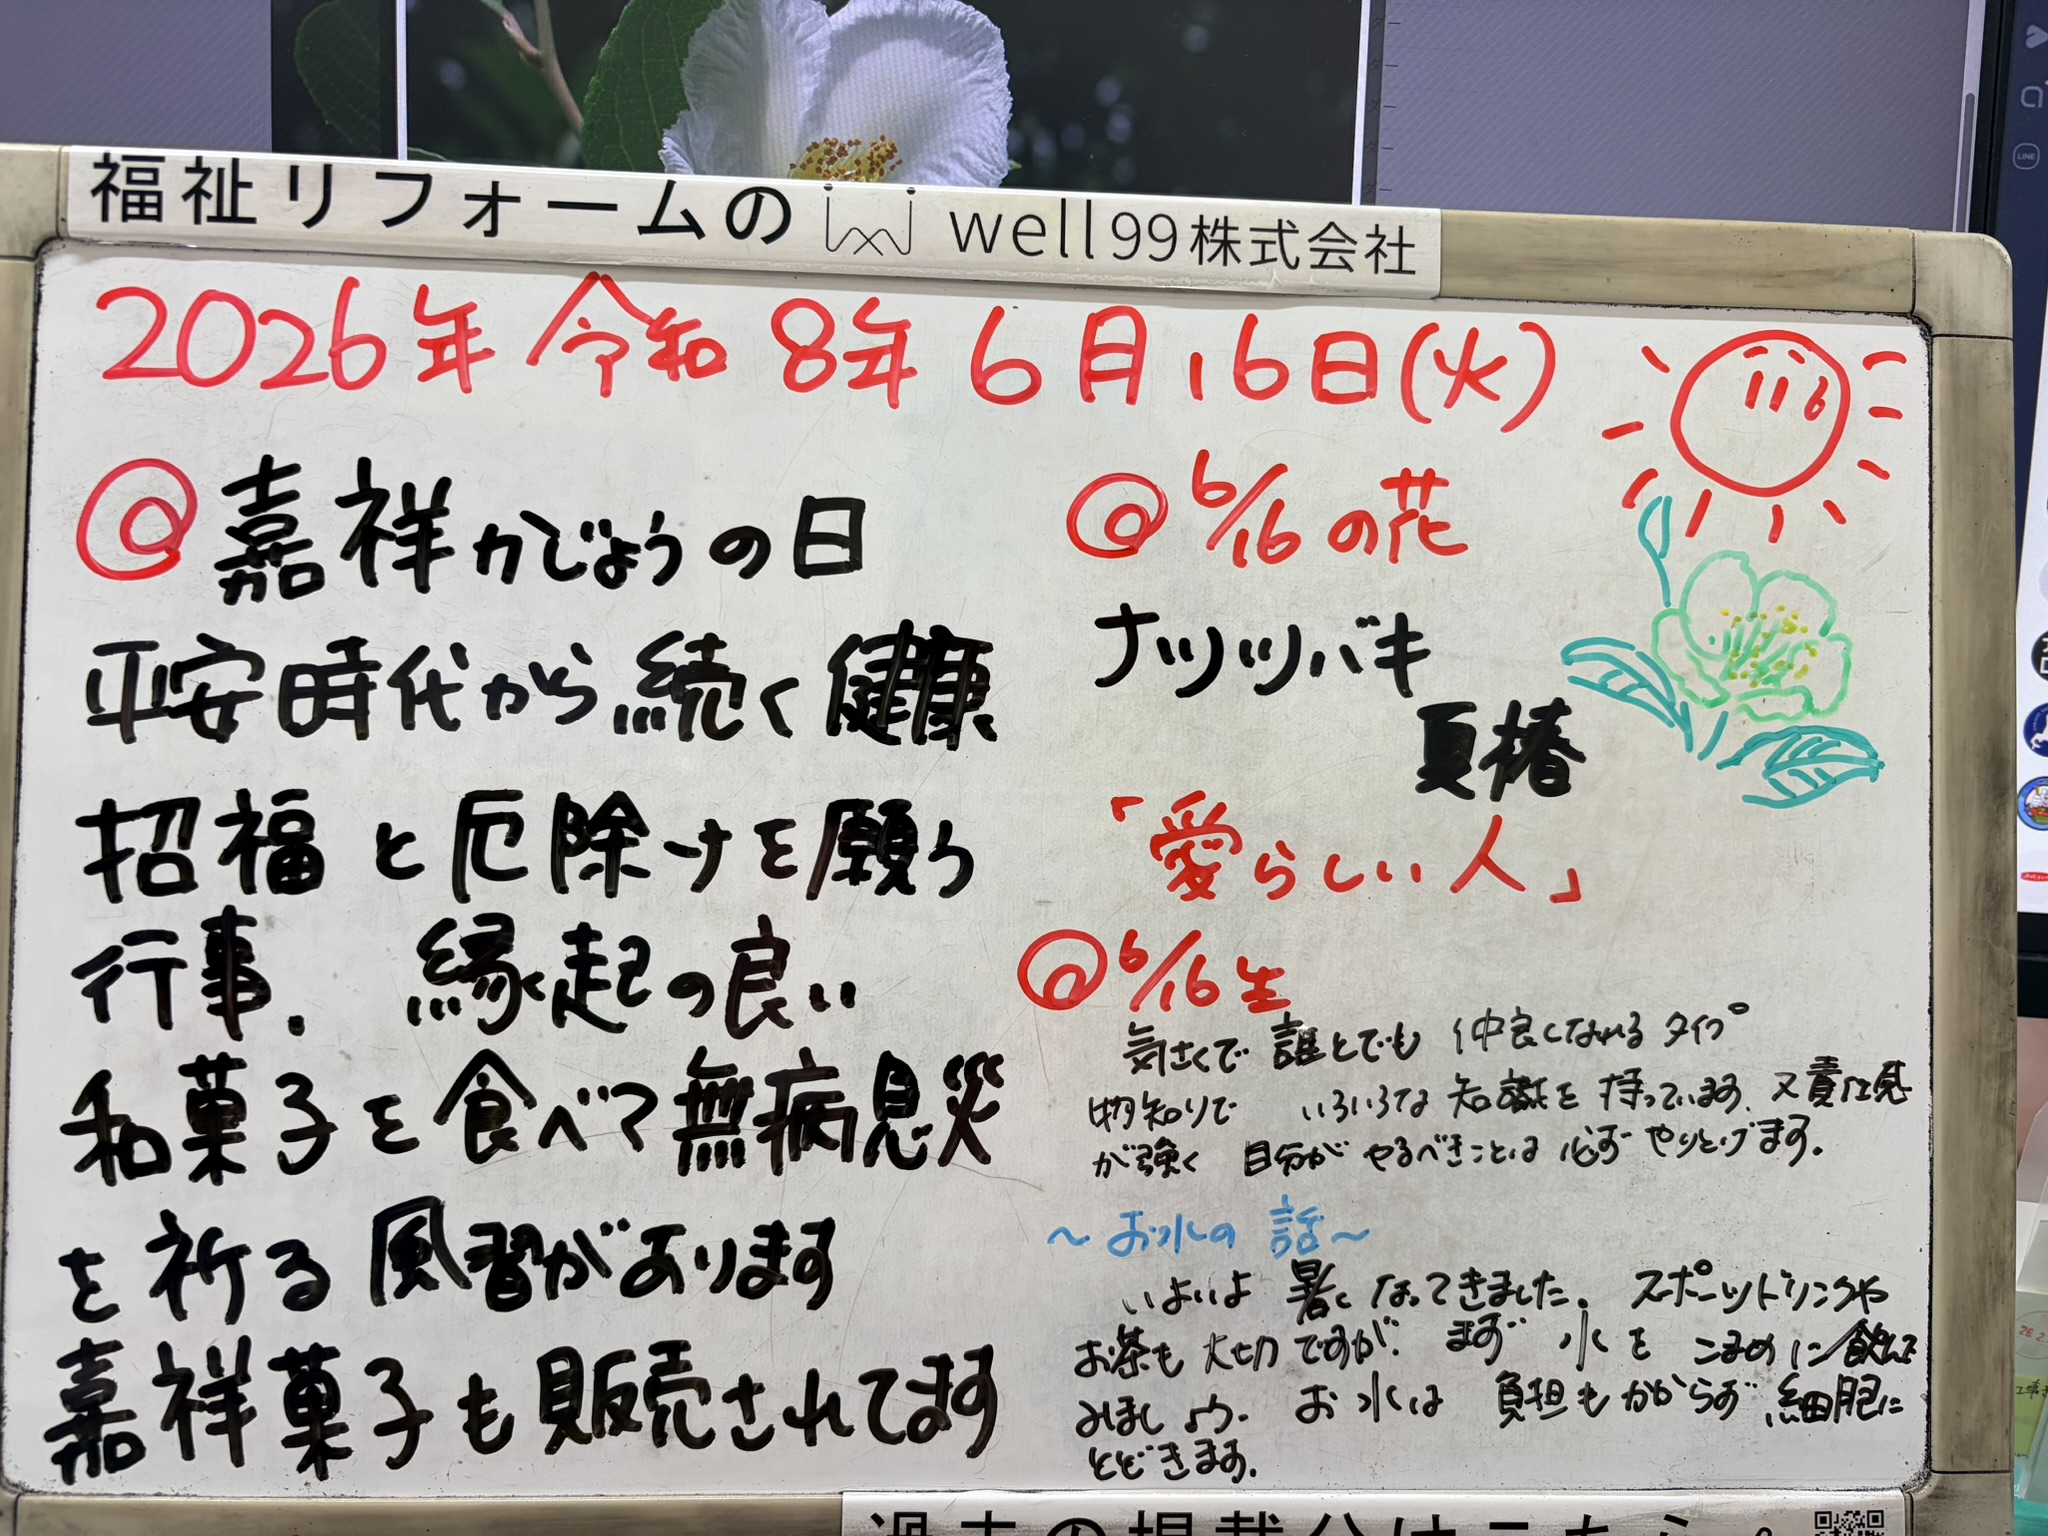 福祉リフォームの well99株式会社
2026年 令和 8年 6月16日(火)
嘉祥かじょうの日
平安時代から続く健康
招福と厄除けを願う
行事. 縁起の良い
和菓子を食べて無病息災
を祈る風習があります
嘉祥菓子も販売されてます
6/16の花
ナツツバキ
夏椿
「愛らしい人」
6/16生
気さくで 誰とでも 仲良くなれる タイプ
物知りで いろいろな 知識を 持っています. 又責任感
が強く 自分が やるべきことは 必ず やりとげます.
～お水の 話～
いよいよ 暑く なってきました. スポーツドリンクや
お茶も 大切 ですが. まず 水を こまめに 飲んで
みましょう. お水は 負担もかからず 細胞に
とどきます.
LINE